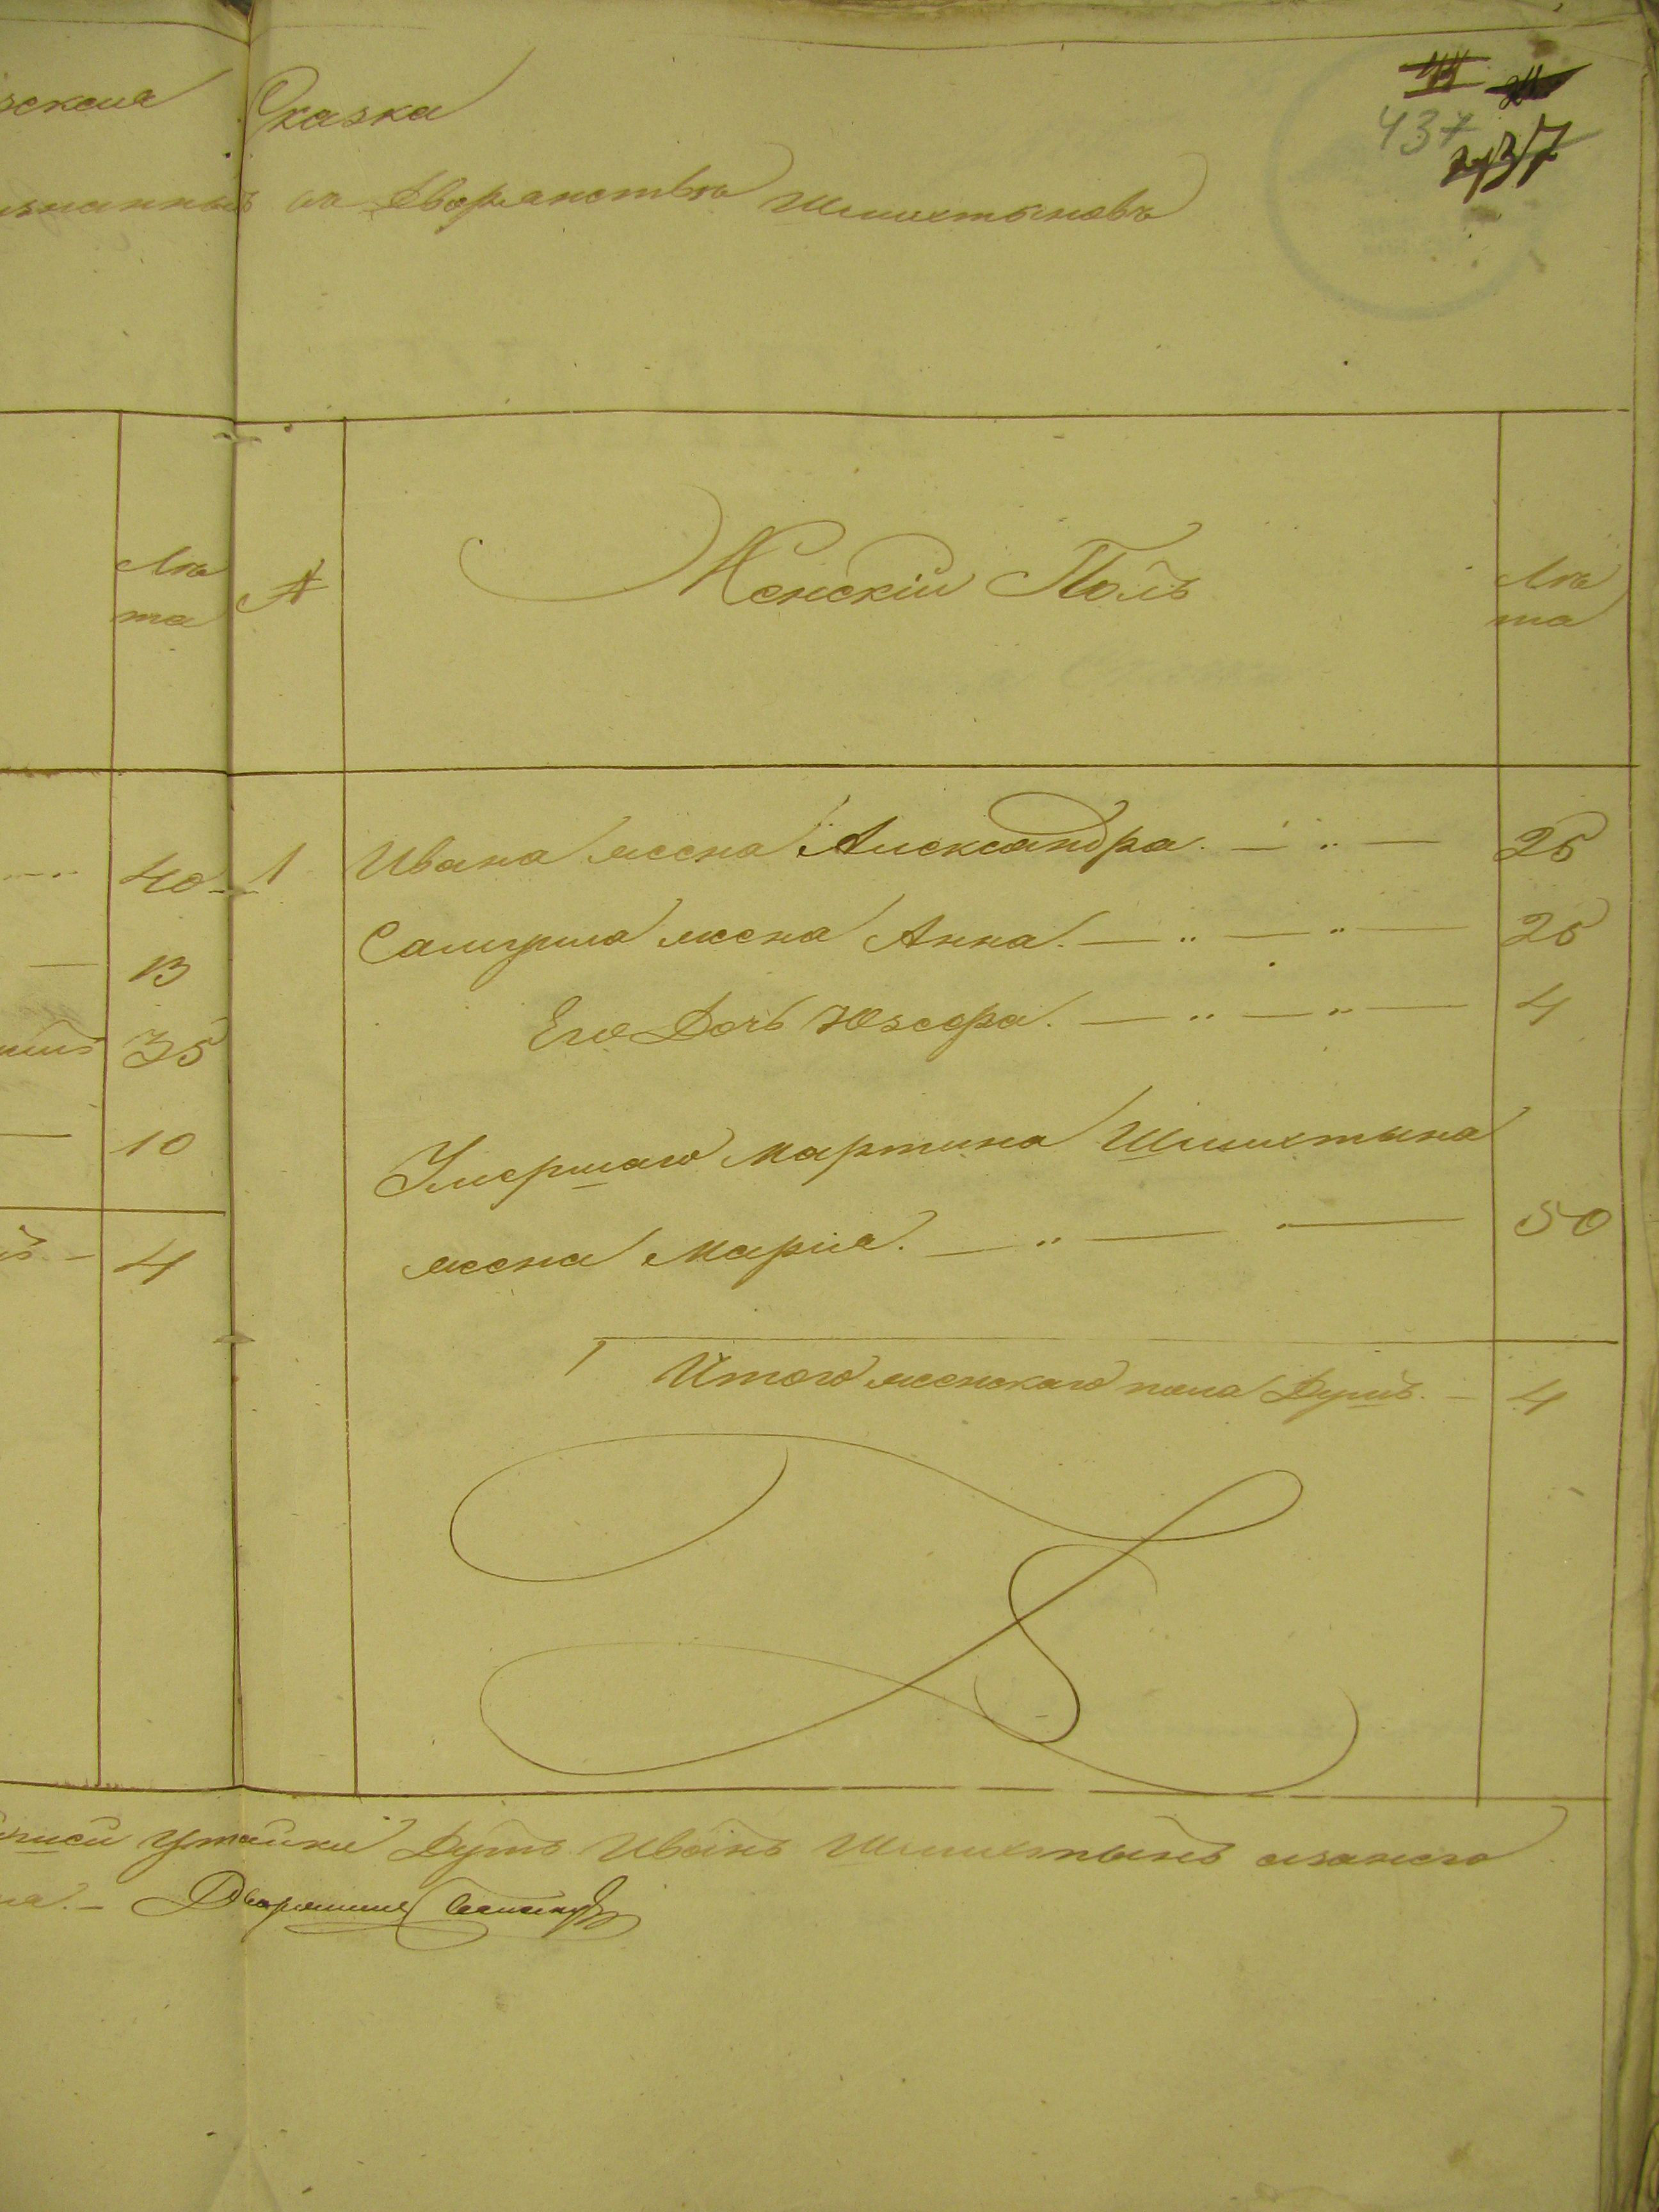 Сказка
въ Дворянствѣ Шлихтыновъ
437
Лѣ
та
№
Женскій Полъ
Лѣ
та
40
1
Ивана жена Александра. — „ —
25
13
жена Анна. — „ — „ —
25
35
Его Дочь Юзефа. — „ — „ —
4
10
Умершаго Мартина Шлихтына
жена Марія. — „ — —
50
4
Итого женскаго пола Душъ. —
4
утайки Душъ Иванъ Шлихтынъ
Дворянинъ